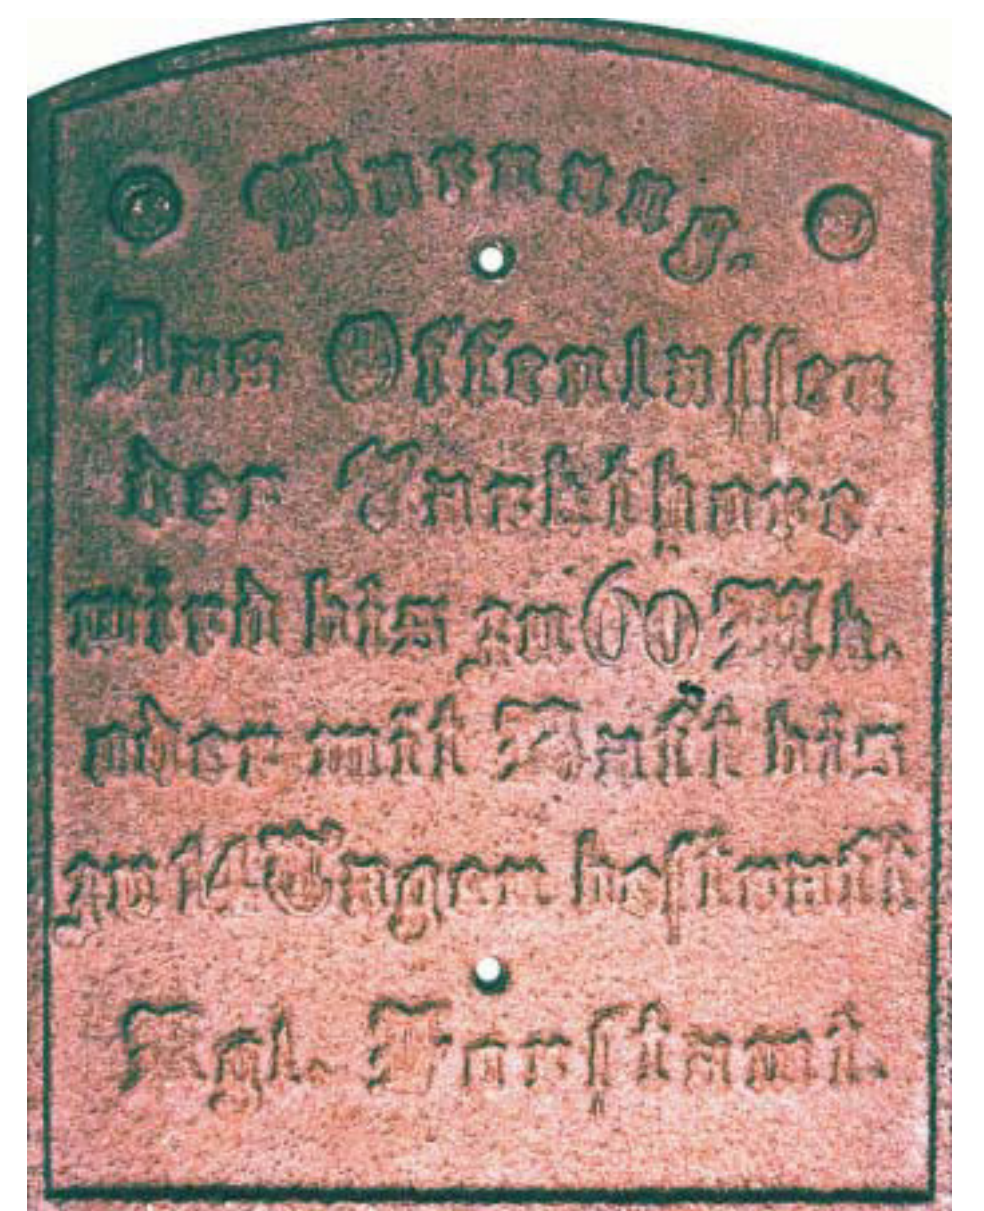 Warnung.
Das Offenlassen
der Parkthore
wird bis zu 60 Mk.
oder mit Haft bis
zu 14 Tagen bestraft
Kgl. Forstamt.